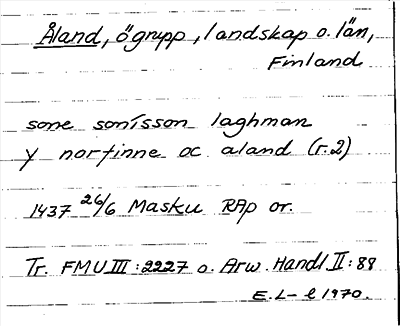 Åland, ögrupp, landskap o. län,
Finland
sone sonisson laghman
y norfinne oc aland (r.2)
1437 26/6 Masku RAp or.
Tr. FMU III:2227 o. Arw. Handl II:88
E.L-l 1970.